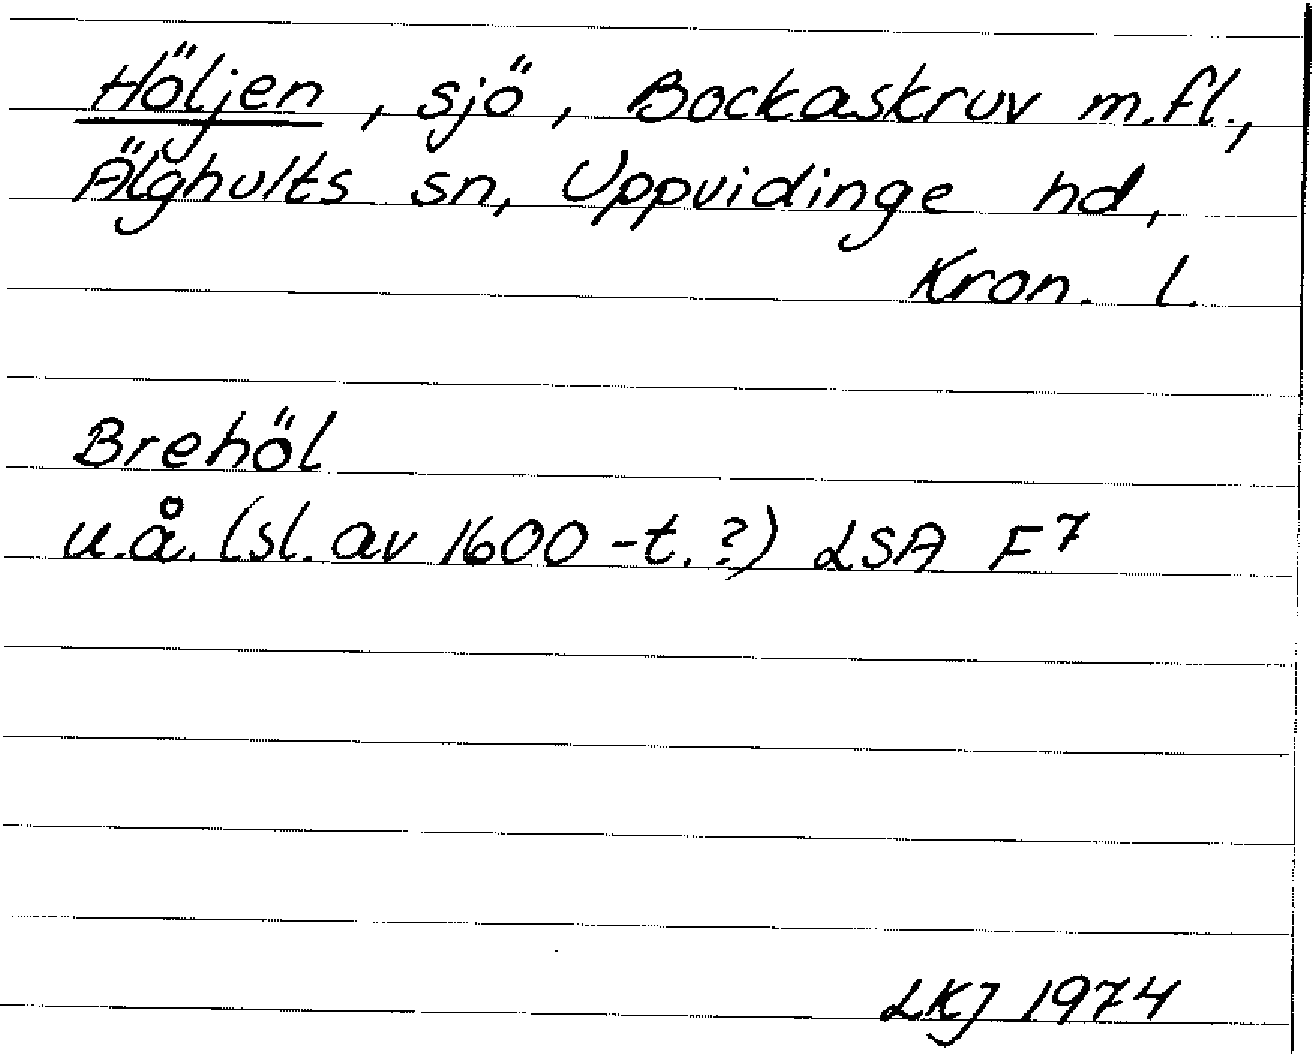 Höljen, sjö, Bockaskruv m.fl.,
Älghults sn, Uppvidinge hd,
Kron. l.
Brehöl
u.å. (sl. av 1600-t.?) LSA F7
LKJ 1974